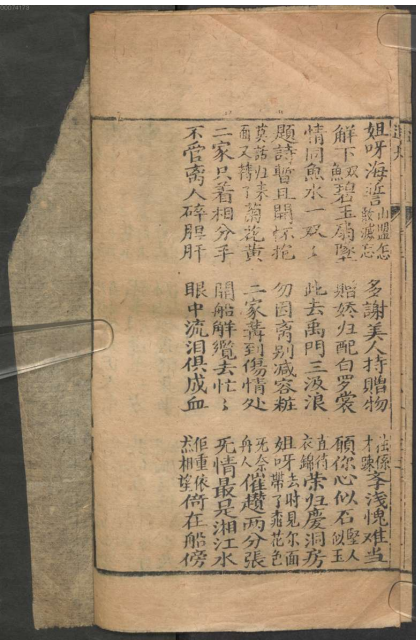 姐呀海誓山盟怎敢濾忘 多謝美人持贈物 才疎李浅愧难当
解下双魚碧玉扇墜 贈嬌归配白罗裳 願你心似石坚人似玉
情同魚水一双〻 此去禹門三汲浪 直待衣錦荣归慶洞房
題詩暫且開怀抱 勿因离别减容粧 姐呀去时見尔面帶了桃花色
莫話归来面又轉了菊花黄 二家講到傷情处 无奈舟人催趲两分張
二家只着相分手 開船解纜去忙〻 死情最是湘江水
不管离人碎胆肝 眼中流泪俱成血 佢重依然相望倚在船傍